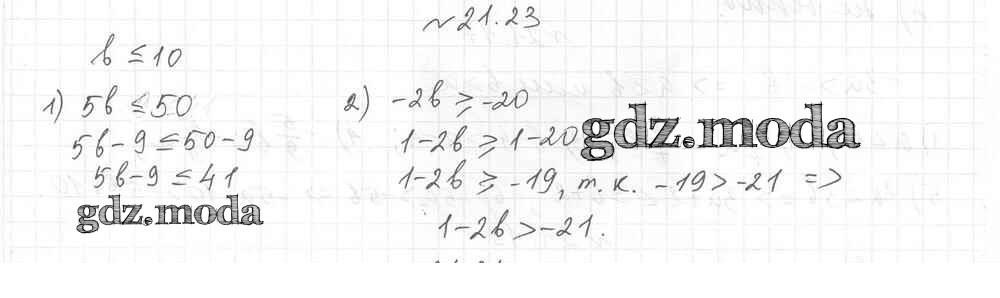 №21.23
b ≤ 10
1) 5b ≤ 50
5b - 9 ≤ 50 - 9
5b - 9 ≤ 41
gdz.moda
2) -2b ≥ -20
1 - 2b ≥ 1 - 20
gdz.moda
1 - 2b ≥ -19, т. к. -19 > -21 =>
1 - 2b > -21.